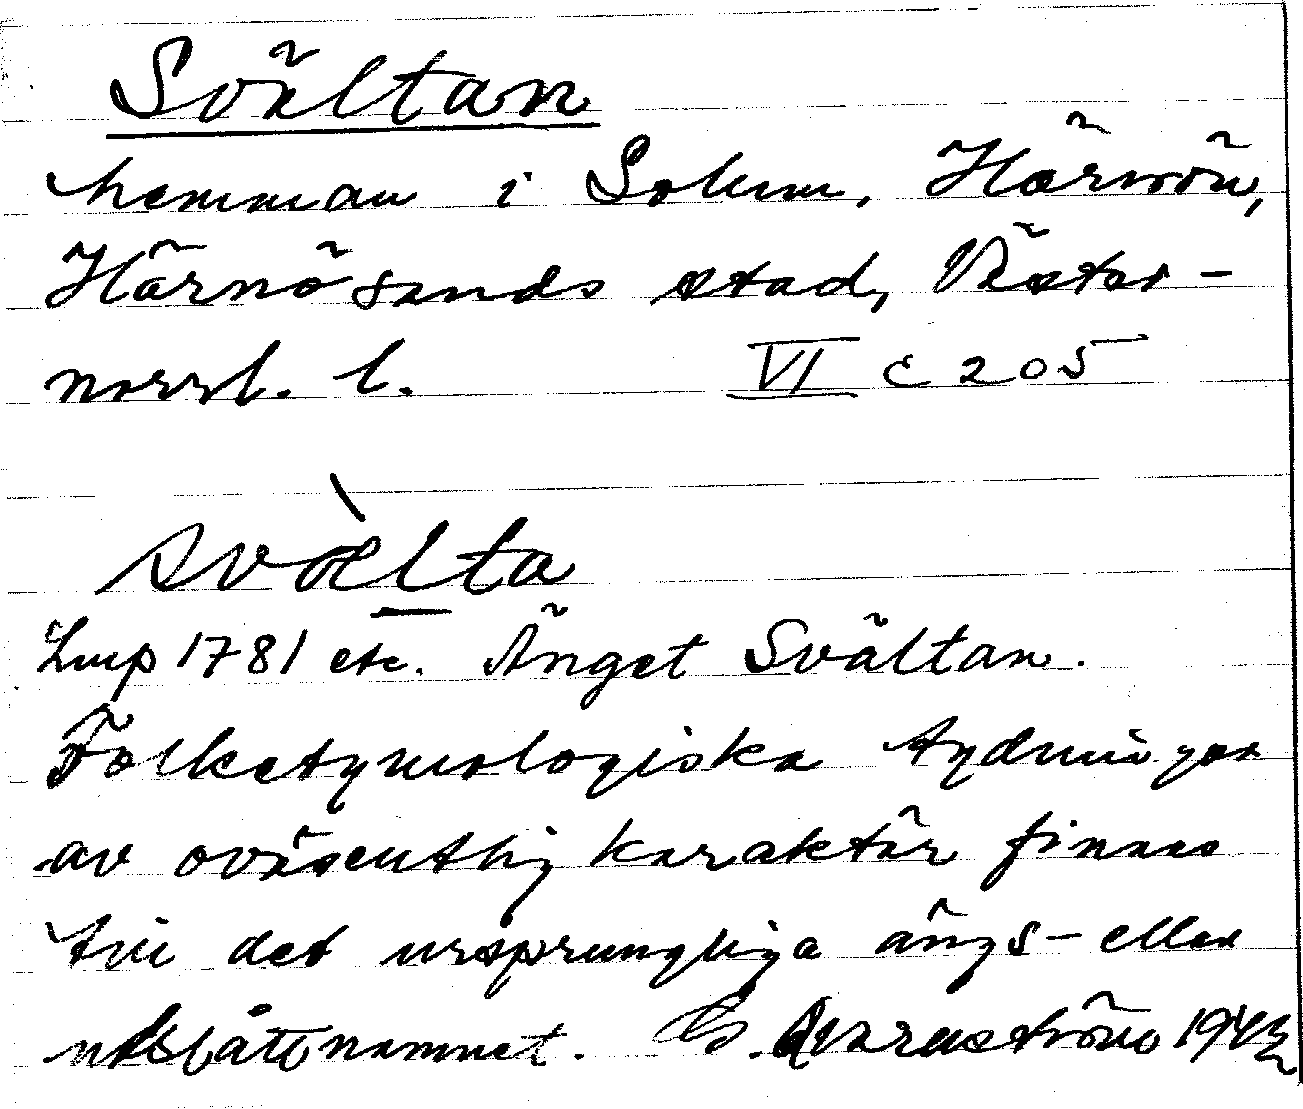 Svältan
hemman i Solum, Härnön,
Härnösands stad, Väster-
norrl. l. VI c 205
svæ̀lta
Lmp 1781 etc. Änget Svältan.
Folketymologiska tydningar
av oväsentlig karaktär finnes
till det ursprungliga ängs- eller
utslåttsnamnet. 1943